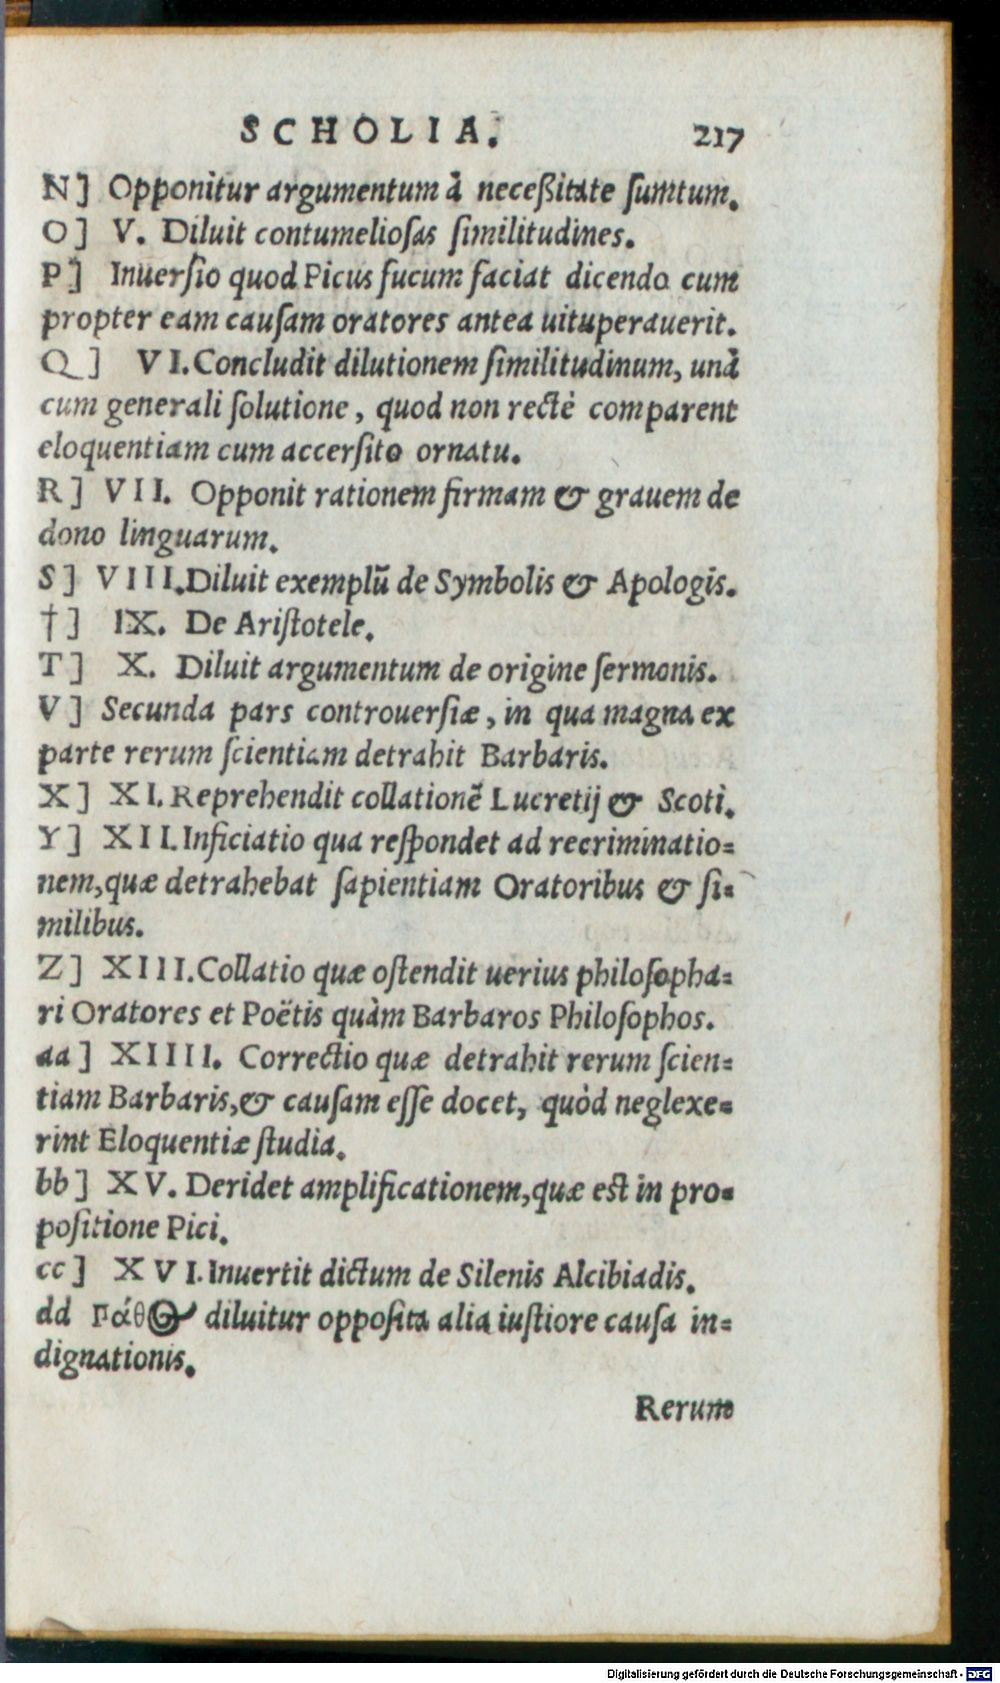 SCHOLIA. 217
N] Opponitur argumentum à neceßitate ſumtum.
O] V. Diluit contumelioſas ſimilitudines.
P] Inuerſio quod Picus fucum faciat dicendo cum
propter eam cauſam oratores antea uituperauerit.
Q] VI. Concludit dilutionem ſimilitudinum, unà
cum generali ſolutione, quod non rectè comparent
eloquentiam cum accerſito ornatu.
R] VII. Opponit rationem firmam & grauem de
dono linguarum.
S] VIII. Diluit exemplũ de Symbolis & Apologis.
†] IX. De Ariſtotele.
T] X. Diluit argumentum de origine ſermonis.
V] Secunda pars controuerſiæ, in qua magna ex
parte rerum ſcientiam detrahit Barbaris.
X] XI. Reprehendit collationẽ Lucretij & Scoti.
Y] XII. Inficiatio qua reſpondet ad recriminatio=
nem, quæ detrahebat ſapientiam Oratoribus & ſi=
milibus.
Z] XIII. Collatio quæ oſtendit uerius philoſopha=
ri Oratores et Poëtis quàm Barbaros Philoſophos.
aa] XIIII. Correctio quæ detrahit rerum ſcien=
tiam Barbaris, & cauſam eſſe docet, quòd neglexe=
rint Eloquentiæ ſtudia.
bb] XV. Deridet amplificationem, quæ est in pro=
poſitione Pici.
cc] XVI. Inuertit dictum de Silenis Alcibiadis.
dd Πάθος diluitur oppoſita alia iuſtiore cauſa in=
dignationis.
Rerum
Digitalisierung gefördert durch die Deutsche Forschungsgemeinschaft - DFG